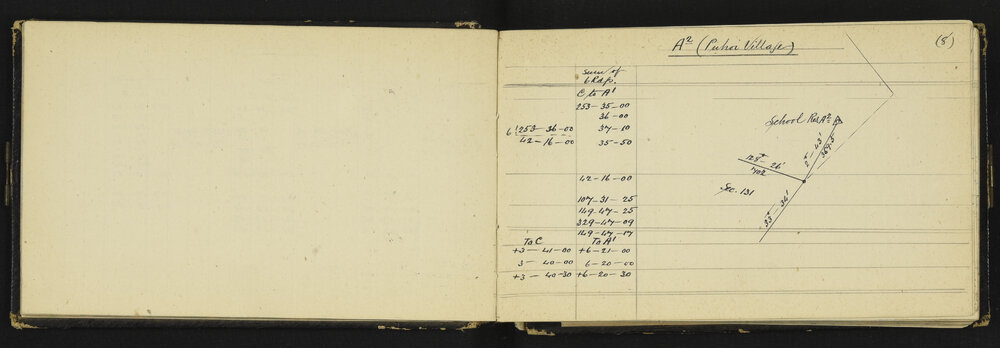 A² (Puhoi Village)
(8)
sum of
6 Rdgs.
C to A'
253-35-00
36-00
6 | 253-36-00 37-10
42-16-00 35-50
42-16-00
107-31-25
149-47-25
329-47-09
149-47-17
To C To A'
+3-41-00 +6-21-00
3-40-00 6-20-00
+3-40-30 +6-20-30
School Res A²
2°-43'
369.5
128°-26'
Sec. 131
33°-34'